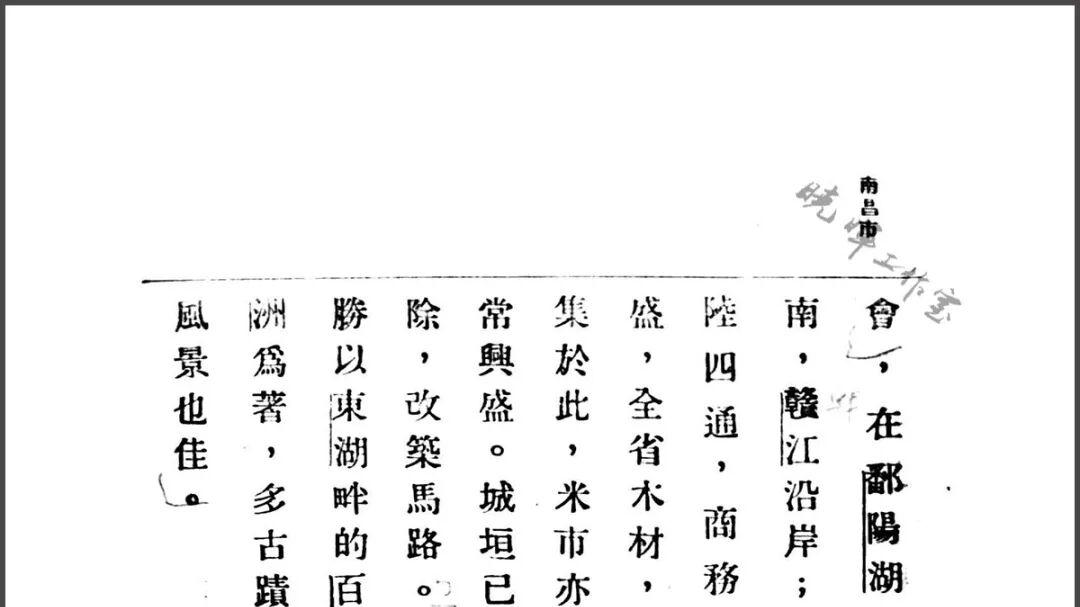 南昌市
曉暉工作室
會，在鄱陽湖
南，贛江沿岸；
陸四通，商務
盛，全省木材，
集於此，米市亦
常興盛。城垣已
除，改築馬路。
勝以東湖畔的百
洲爲著，多古蹟
風景也佳。